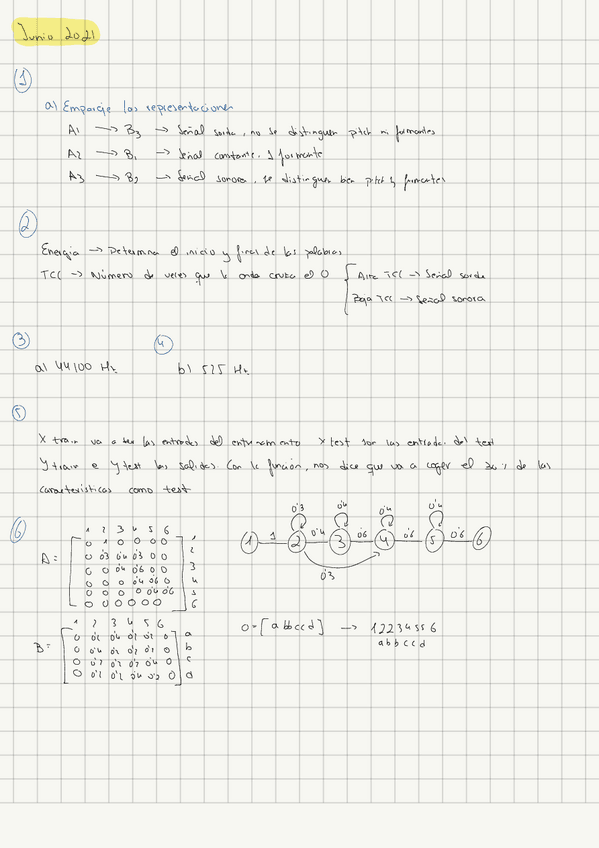 Junio 2021
1
a) Empareje las representaciones
A1 → B3 → Señal sorda, no se distinguen pitch ni formantes
A2 → B1 → Señal constante. 1 formante
A3 → B2 → Señal sonora, se distinguen bien pitch y formantes
2
Energia → Determina el inicio y final de las palabras
TCC → Número de veces que la onda cruza el 0 { Alta TCC → Señal sorda
Baja TCC → Señal sonora
3 4
a) 44100 Hz b) 525 Hz
5
X train va a ser las entradas del entrenamiento X test son las entradas del test
Y train e Y test las salidas. Con la función, nos dice que va a coger el 20% de las
características como test
6
1 2 3 4 5 6
0 1 0 0 0 0 1
0 0'3 0'4 0'3 0 0 2
A = 0 0 0'4 0'6 0 0 3
0 0 0 0'4 0'6 0 4
0 0 0 0 0'4 0'6 5
0 0 0 0 0 0 6
0'3 0'4 0'4 0'4
1 1 2 0'4 3 0'6 4 0'6 5 0'6 6
0'3
1 2 3 4 5 6
0 0'4 0 a
B = 0 0'4 0 b
0 0'4 0 c
0 0'4 0 d
O = [a b b c c d] → 1 2 2 3 4 5 5 6
a b b c c d